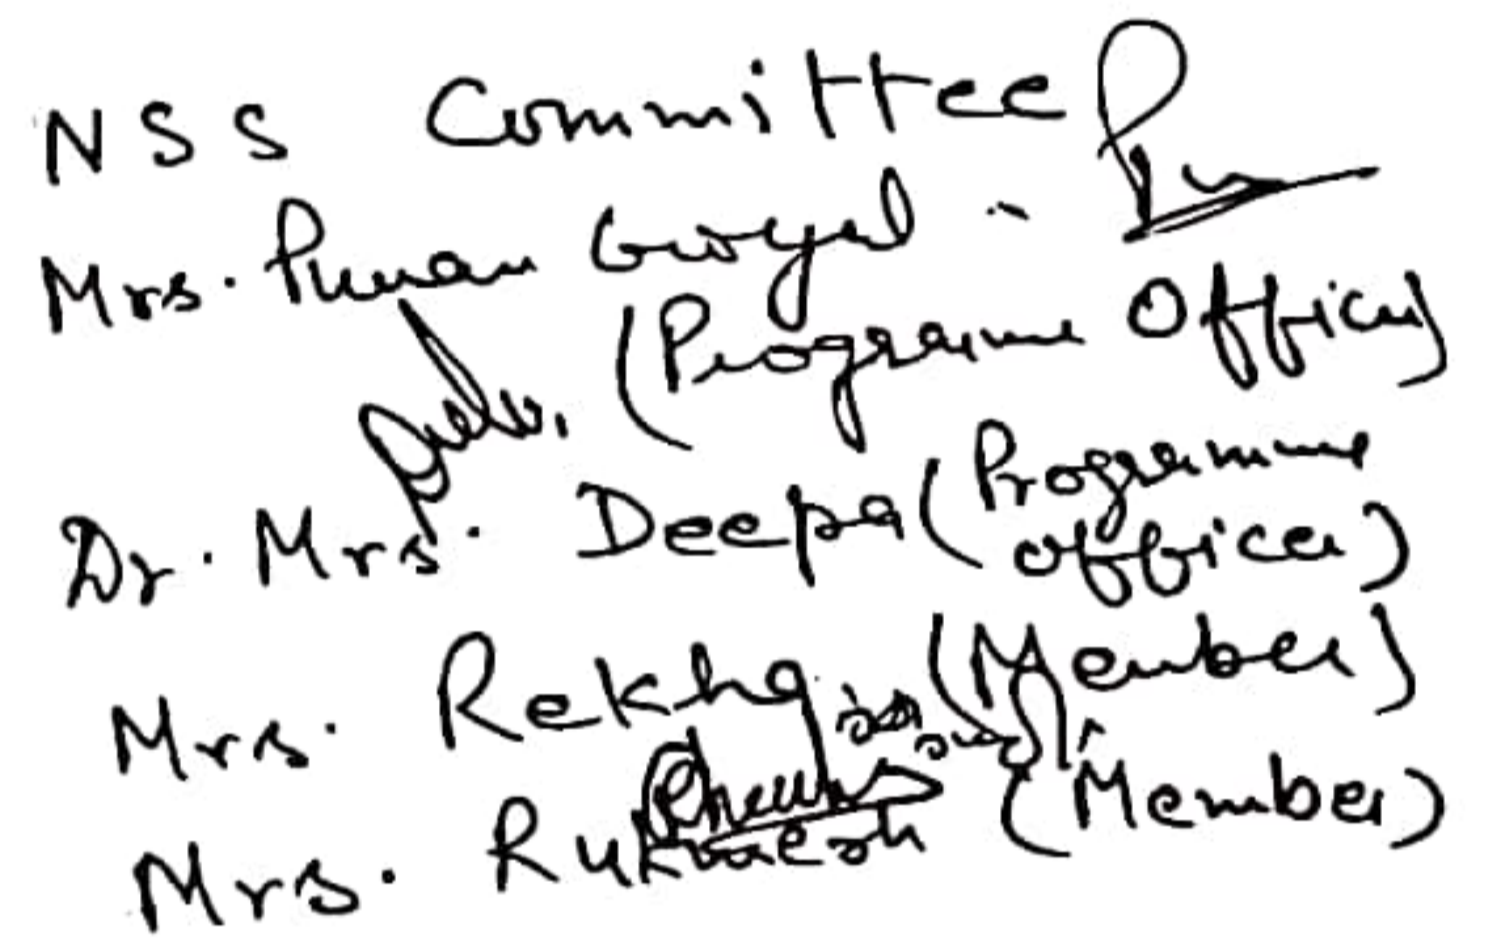 NSS Committee
Mrs. Punam Goyal -
(Programme Officer)
Dr. Mrs. Deepa (Programme
officer)
Mrs. Rekha (Member)
Mrs. Rukmesh (Member)